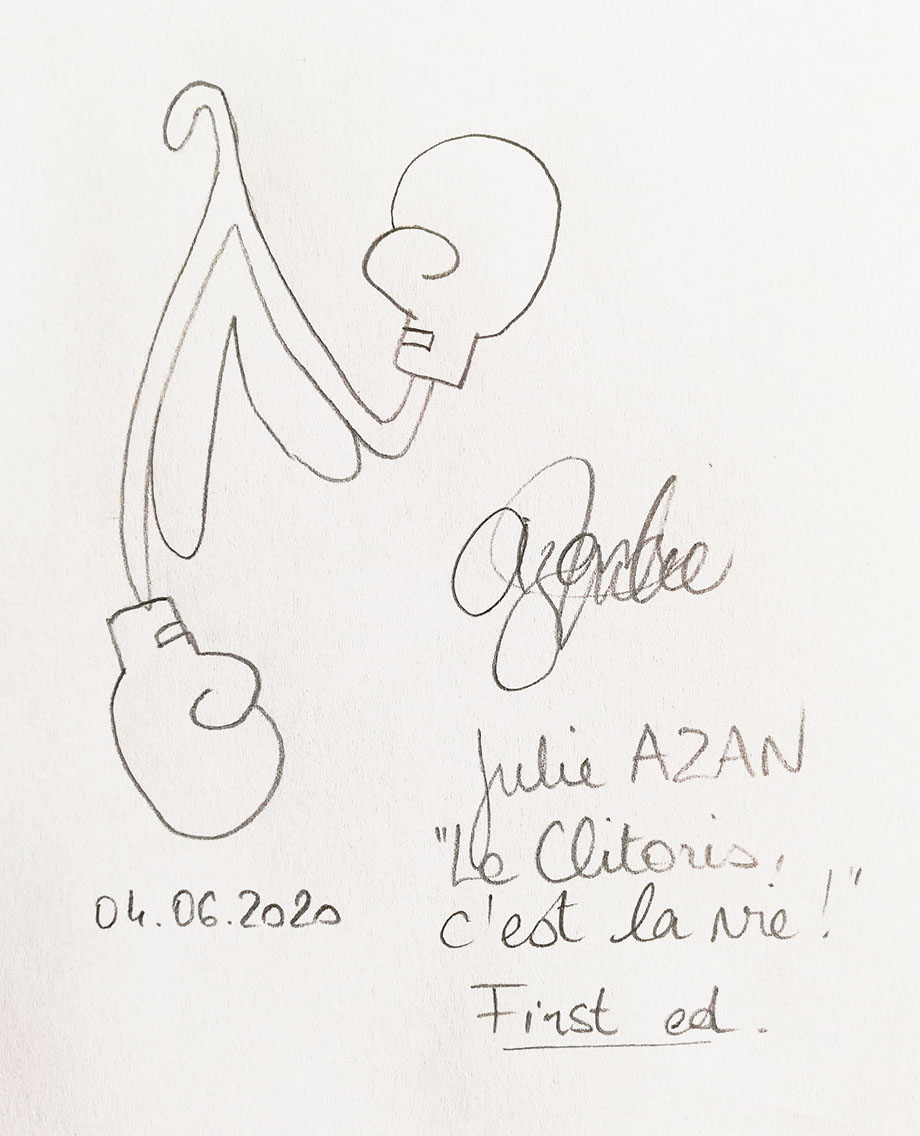 Julie AZAN
"Le Clitoris,
c'est la vie !"
04.06.2020
First ed.